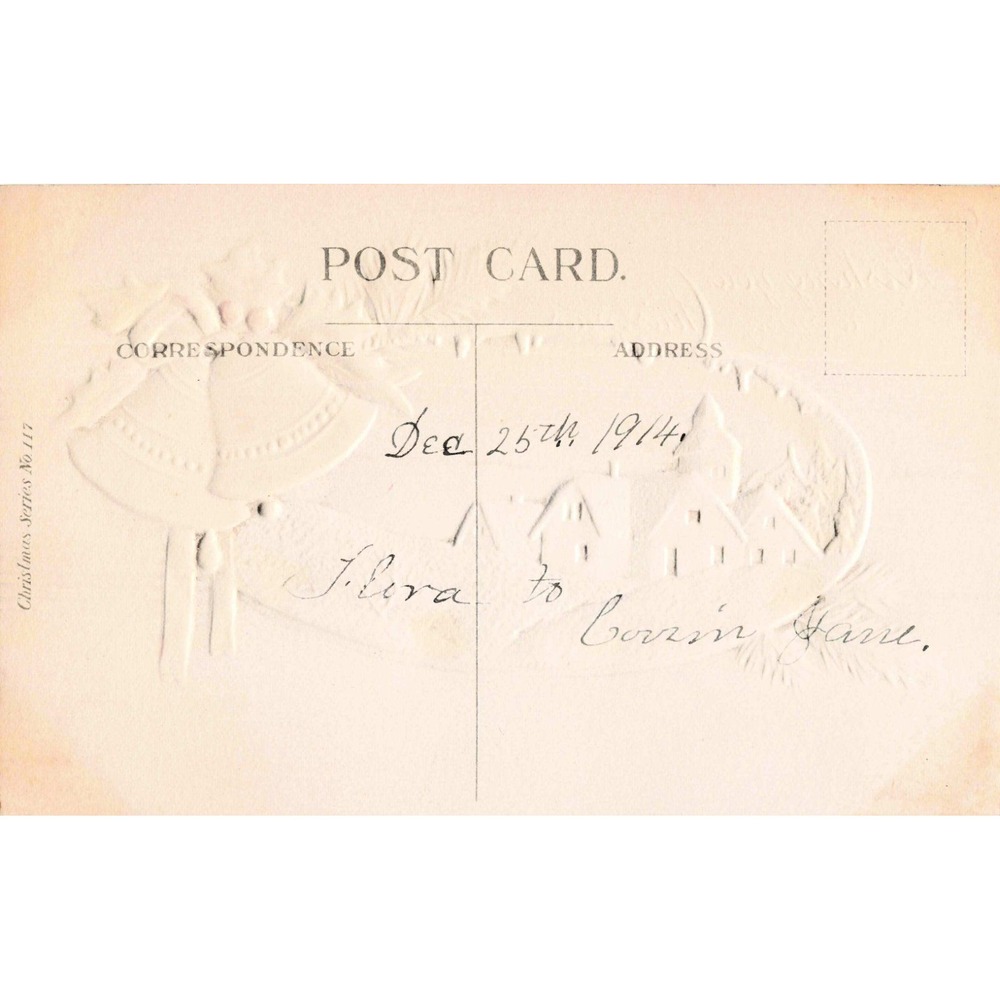 POST CARD.
CORRESPONDENCE
ADDRESS
Dec 25th 1914.
Flora to
Cousin Jane.
Christmas Series No 117